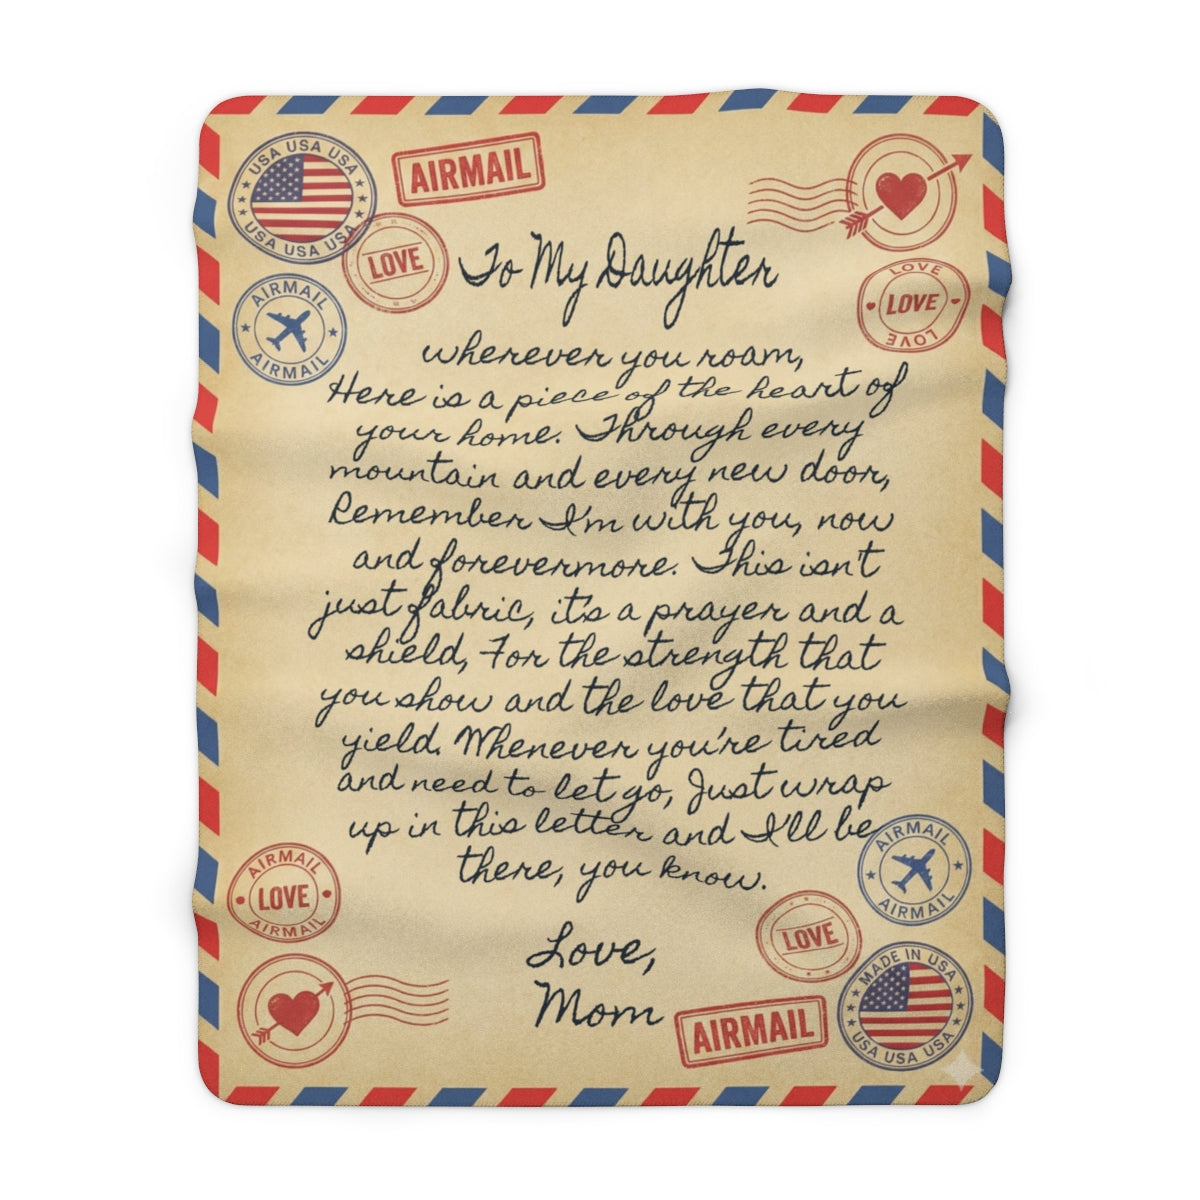 USA USA USA
USA USA USA
AIRMAIL
LOVE
AIRMAIL
AIRMAIL
LOVE
LOVE
LOVE
To My Daughter
wherever you roam,
Here is a piece of the heart of
your home. Through every
mountain and every new door,
Remember I'm with you, now
and forevermore. This isn't
just fabric, it's a prayer and a
shield, For the strength that
you show and the love that you
yield. Whenever you're tired
and need to let go, Just wrap
up in this letter and I'll be
there, you know.
Love,
Mom
AIRMAIL
LOVE
AIRMAIL
AIRMAIL
AIRMAIL
LOVE
AIRMAIL
MADE IN USA
USA USA USA